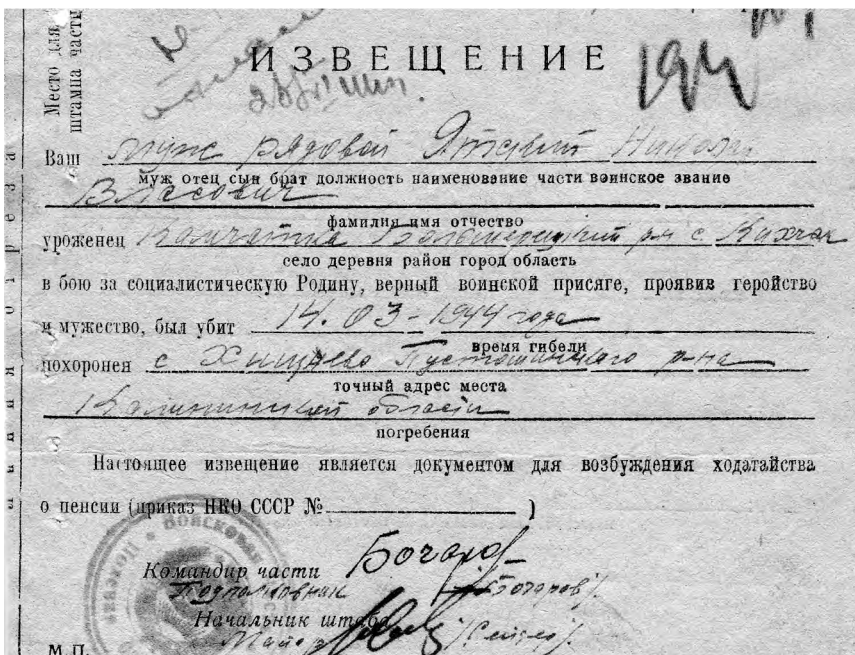 Место для
штампа части
ИЗВЕЩЕНИЕ
194
Ваш муж рядовой Николай
муж отец сын брат должность наименование части воинское звание
Власович
фамилия имя отчество
уроженец Камчатка Большерецкий р-н с. Кихчик
село деревня район город область
в бою за социалистическую Родину, верный воинской присяге, проявив геройство
и мужество, был убит 14. 03-1944 года
время гибели
похоронен с Хищнево Пустошинского р-на
точный адрес места
Калининской области
погребения
Настоящее извещение является документом для возбуждения ходатайства
о пенсии (приказ НКО СССР № )
Командир части Бочаров
Подполковник /Бочаров/
Начальник штаба
Майор
М.П.
Войсковая